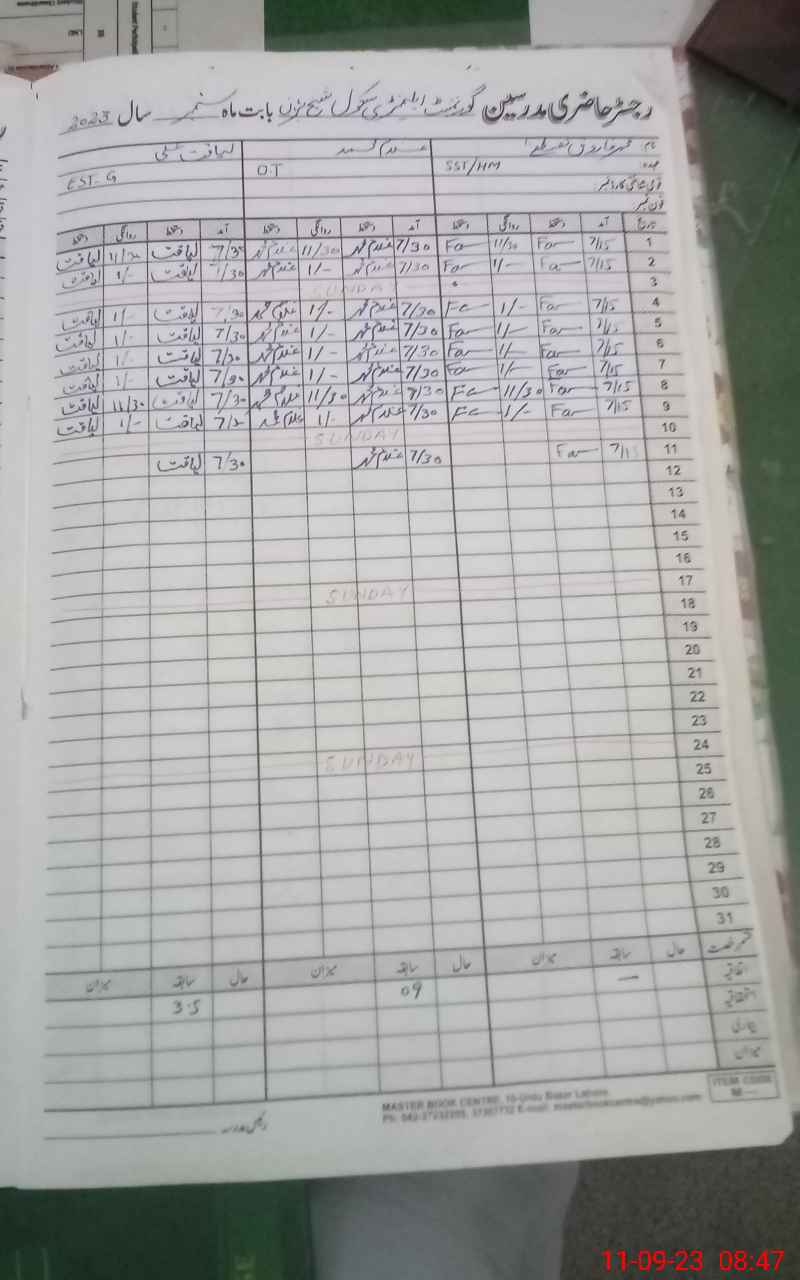 رجسٹر حاضری مدرسین گورنمنٹ ایلیمنٹری سکول شیخ بابت ماہ ستمبر سال 2023
نام: لیاقت علی
عہدہ: SST/HM O.T EST-G
قومی شناختی کارڈ نمبر:
فون نمبر:
تاریخ آمد دستخط روانگی دستخط آمد دستخط روانگی دستخط آمد دستخط روانگی دستخط
1 7/15 Far 11/30 Far 7/30 غلام محمد 11/30 غلام محمد 7/30 لیاقت 11/30 لیاقت
2 7/15 Far 1/- Far 7/30 غلام محمد 1/- غلام محمد 7/30 لیاقت 1/- لیاقت
3 SUNDAY
4 7/15 Far 1/- Fa 7/30 غلام محمد 1/- غلام محمد 7/30 لیاقت 1/- لیاقت
5 7/15 Far 1/- Far 7/30 غلام محمد 1/- غلام محمد 7/30 لیاقت 1/- لیاقت
6 7/15 Far 1/- Far 7/30 غلام محمد 1/- غلام محمد 7/30 لیاقت 1/- لیاقت
7 7/15 Far 1/- Far 7/30 غلام محمد 1/- غلام محمد 7/30 لیاقت 1/- لیاقت
8 7/15 Far 11/30 Fa 7/30 غلام محمد 11/30 غلام محمد 7/30 لیاقت 11/30 لیاقت
9 7/15 Far 1/- Fa 7/30 غلام محمد 1/- غلام محمد 7/30 لیاقت 1/- لیاقت
10 SUNDAY
11 7/15 Far 7/30 غلام محمد 7/30 لیاقت
12
13
14
15
16
17 SUNDAY
18
19
20
21
22
23
24 SUNDAY
25
26
27
28
29
30
31
قسم رخصت حال سابقہ میزان حال سابقہ میزان حال سابقہ میزان
اتفاقیہ — 09 3.5
استحقاقیہ
بیماری
میزان
ITEM CODE
M
MASTER BOOK CENTRE, 10-Urdu Bazar Lahore.
رئیس مدرسہ
11-09-23 08:47